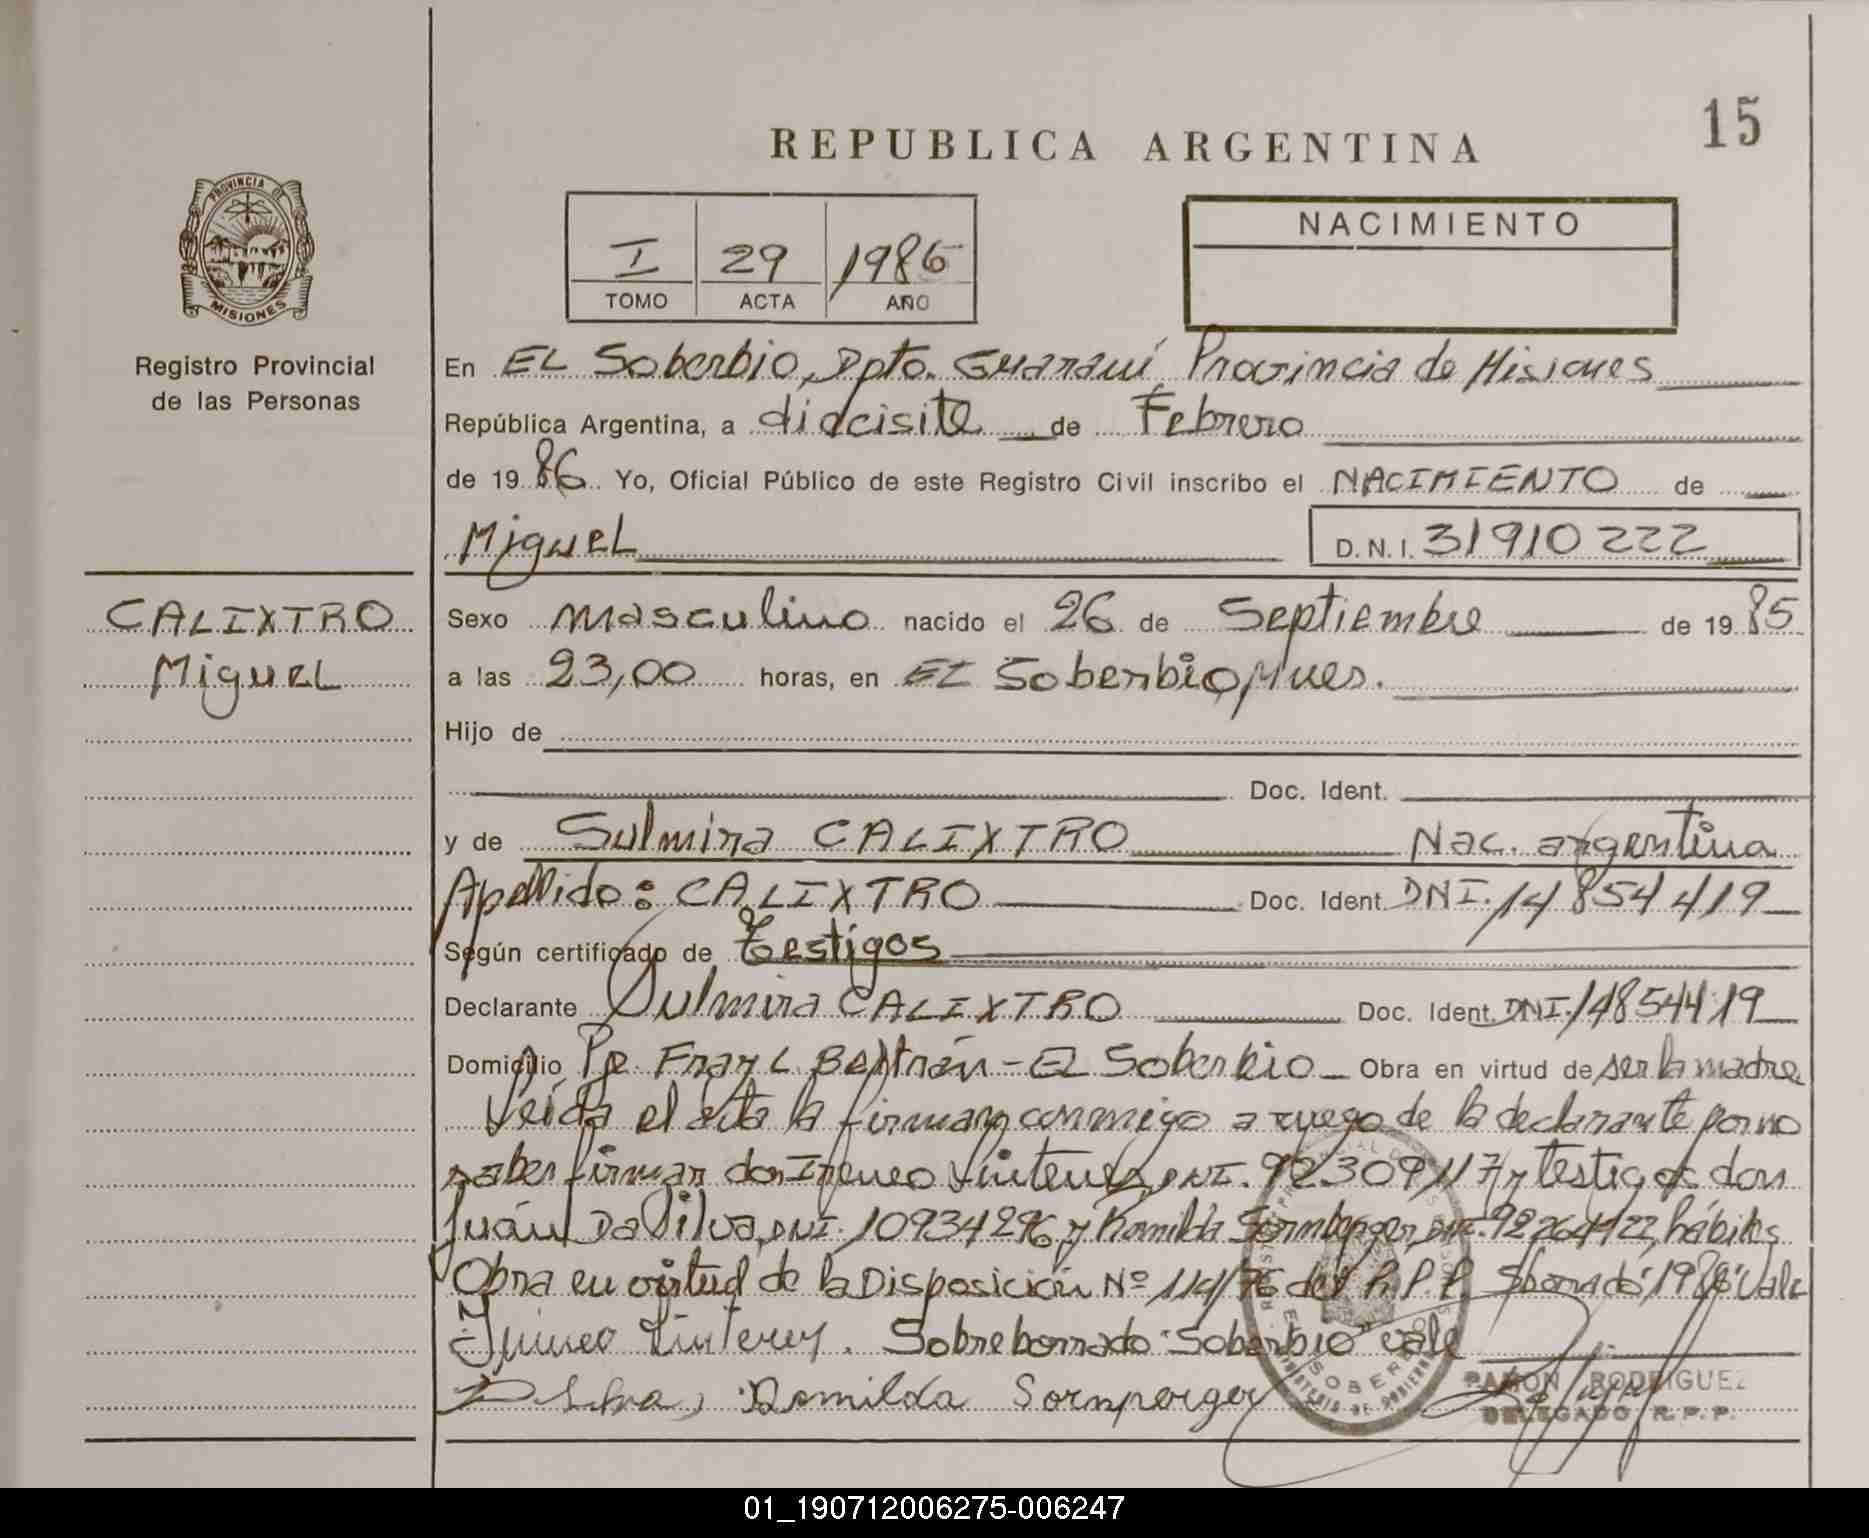 15
REPUBLICA ARGENTINA
PROVINCIA DE
MISIONES
Registro Provincial
de las Personas
I 29 1986
TOMO ACTA AÑO
NACIMIENTO
En EL Soberbio, Dpto. Guaraní Provincia de Misiones
República Argentina, a diecisite de Febrero
de 19 86 Yo, Oficial Público de este Registro Civil inscribo el NACIMIENTO de
Miguel D.N.I. 31910222
CALIXTRO
Miguel
Sexo masculino nacido el 26 de Septiembre de 19 85
a las 23,00 horas, en EL Soberbio, Mnes.
Hijo de
Doc. Ident.
y de Sulmira CALIXTRO Nac. argentina
Apellido: CALIXTRO Doc. Ident. DNI. 14854419
Según certificado de Testigos
Declarante Sulmira CALIXTRO Doc. Ident. DNI. 14854419
Domicilio Pje. Fray L. Beltrán - El Soberbio Obra en virtud de ser la madre
Leída el acta la firman conmigo a ruego de la declarante por no
saber firmar don Ireneo DNI. 92309117 y testigos don
Juán Da Silva, DNI. 10934296 y Romilda DNI. hábiles
Obra en virtud de la Disposición Nº 114/76 del R.P.P. 1986 Vale
Sobreborrado "Soberbio" vale
Romilda Sornperger
RAMON RODRIGUEZ
DELEGADO R.P.P.
01_190712006275-006247